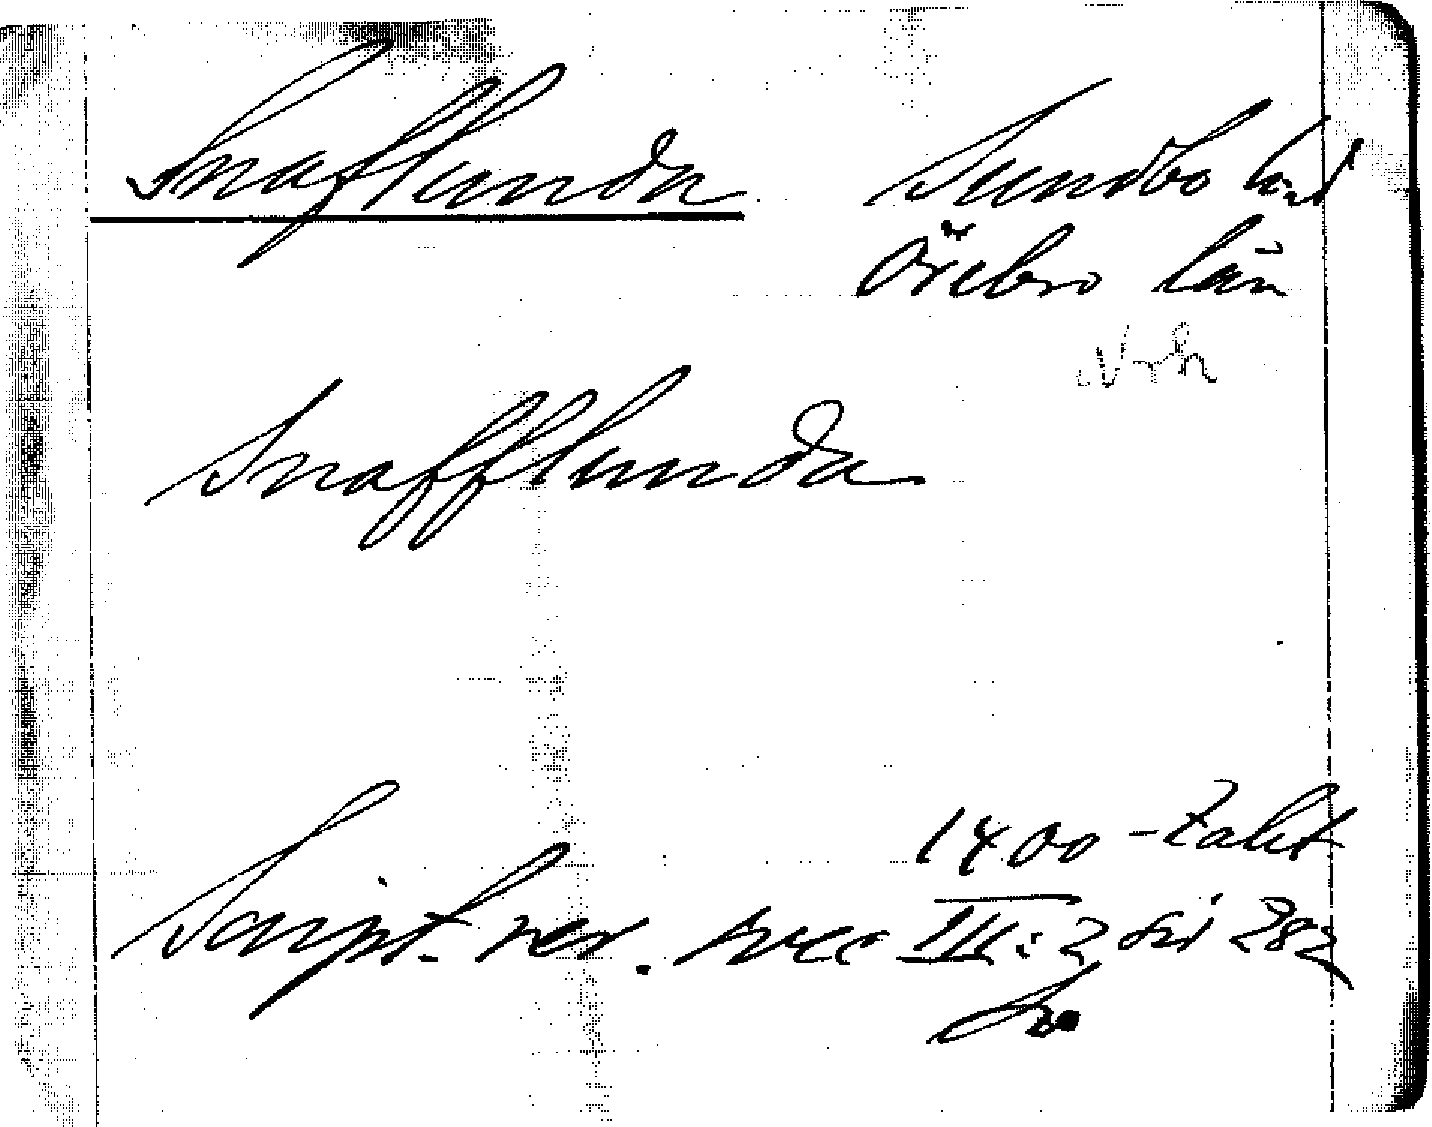 Snaflunda Sundbo hd
Örebro län
Nrk
Snafflunda
1400-talet
Script. rer. svec III:2 sid 282